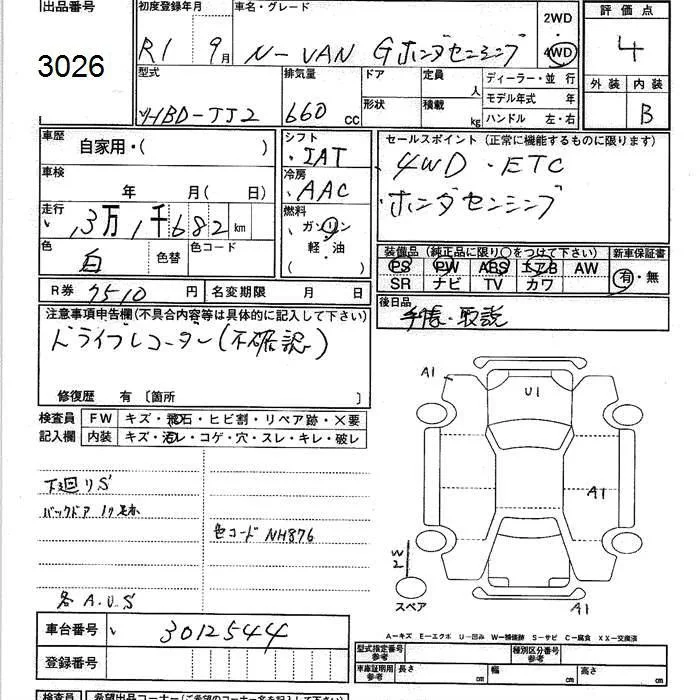 出品番号
3026
初度登録年月
R1 9月
車名・グレード
N-VAN Gホンダセンシング
2WD
4WD
評価点
4
外装 内装
B
型式
HBD-JJ2
排気量
660 cc
ドア
形状
定員 人
積載 kg
ディーラー・並行
モデル年式 年
ハンドル 左・右
車歴
自家用・( )
車検
年 月( 日)
走行
3万1千682km
色
白
色替
色コード
シフト
IAT
冷房
AAC
燃料
ガソリン
軽・油
( )
セールスポイント(正常に機能するものに限ります)
4WD・ETC
ホンダセンシング
装備品(純正品に限り○をつけて下さい)
PS PW ABS エアB AW
SR ナビ TV カワ
新車保証書
有・無
R券 7510円
名変期限 月 日
後日品
手帳・取説
注意事項申告欄(不具合内容等は具体的に記入して下さい)
ドライブレコーダー(不確認)
修復歴 有〔箇所 〕
検査員
記入欄
FW キズ・飛石・ヒビ割・リペア跡・×要
内装 キズ・汚レ・コゲ・穴・スレ・キレ・破レ
下廻りS
バックドア
色コード NH876
各A.U.S
A1
U1
A1
W2
スペア
A1
車台番号 3012544
登録番号
A―キズ E―エクボ U―凹み W―補修跡 S―サビ C―腐食 XX―交換済
型式指定番号
参考
種別区分番号
参考
車庫証明用
参考
長さ cm 幅 cm 高さ cm
検査員
希望出品コーナー(ご希望のコーナー名を記入下さい)